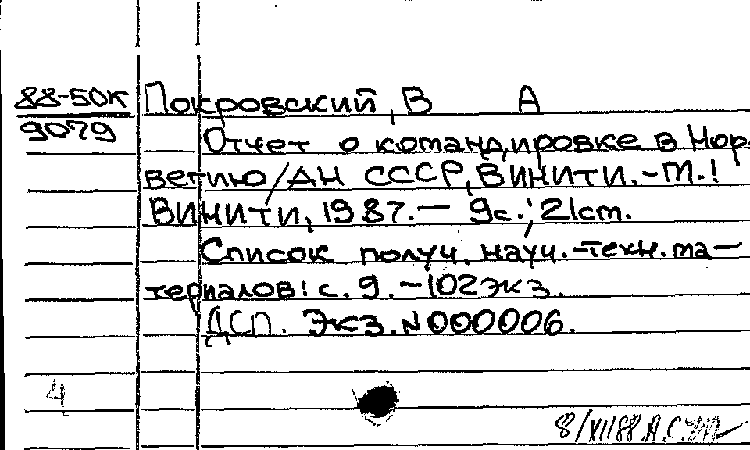 88-50К
9079
Покровский, В А
Отчет о командировке в Нор
вегию/АН СССР, ВИНИТИ.-М.:
ВИНИТИ, 1987. — 9с.; 21cm.
Список получ. науч.-техн. ма-
териалов: с. 9. — 102экз.
ДСП. Экз. N000006.
4
8/XII88